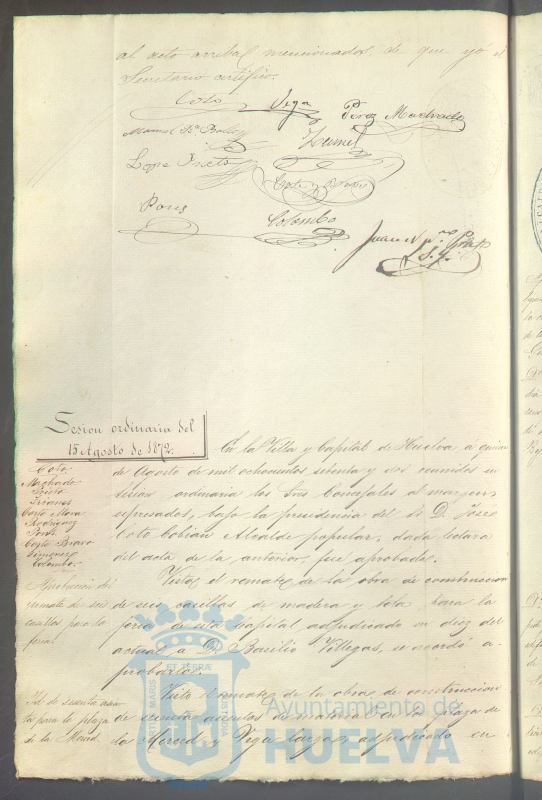 al acto arriba mencionados, de que yo el
Secretario certifico.
Coto Vega Perez Machado
Lope Prieto
Pons Colombo
Sesion ordinaria del
15 Agosto de 1872.
Coto
Machado
Prieto
Rodriguez
Pons
Bravo
Gimenez
Colombo
En la Villa y Capital de Huelva a quince
de Agosto de mil ochocientos setenta y dos reunidos en
sesion ordinaria los Sres Concejales al margen
espresados, bajo la presidencia del Sr D. Jose
Coto Cobian Alcalde popular, dada lectura
del acta de la anterior, fue aprobada.
Aprobacion del
remate de seis
casillas para la
feria.
Visto el remate de la obra de construccion
de seis casillas de madera y lona para la
feria de esta Capital adjudicado en diez del
actual a D. Basilio Villegas, se acordó a-
probarlo.
Id de
para la plaza
de la Merced.
Visto el remate de la obra de construccion
de asientos de material en la plaza de
la Merced y Vega-larga, adjudicado en
PORTUS MARIS ET TERRÆ CUSTODIA
Ayuntamiento de
HUELVA